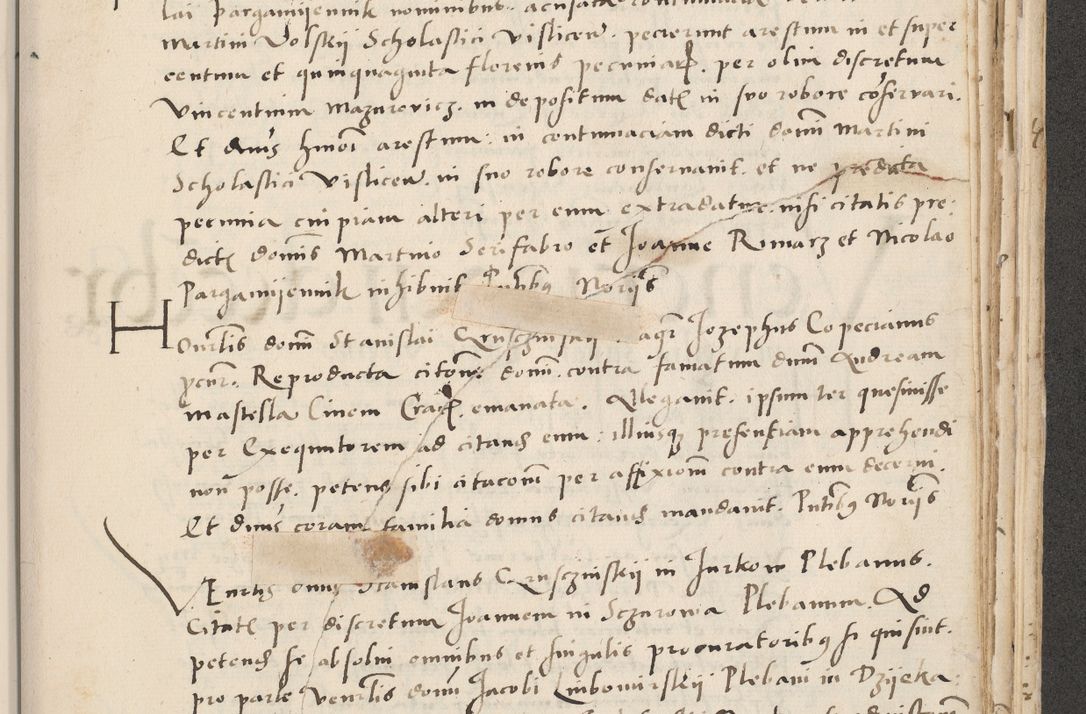 lai Pargamijennik nominibus
Martini Volskij Scholastici Vislicen. pecierunt arestum in et super
centum et quinquaginta florenis pecuniar. per olim discretum
Vincentium Mazurovicz. in depositum dat in suo robore coservari.
Et dnus hmoi arestum. in contumaciam dicti domi Martini
Scholastici Vislicen. in suo robore conservavit. et ne predicta
pecunia cuipiam alteri per eum extradatur. nisi citatis pre:
dictis domis Martino Serifabro et Joanne Rimarz et Nicolao
Pargamijennik inhibuit. Pntibus Norijs
Honrlis domi Stanislai Cruszinskij agr Jozephus Copecianus
pcur. Reproducta citone domi. contra famatum dnum Andream
Mastella Civem Crac. emanata. Allegavit. ipsum ter quesivisse
per Exequutorem ad citand eum: illiusque presentiam apprehendi
non posse. petens sibi citaconem per affixionem contra eum decerni.
Et dnus coram familia domus citand mandavit. Pntibus Norijs
Venrlis dnus Stanislaus Crusczinskij in Jurkow Plebanus.
Citat per discretum Joannem in Sczurowa Plebanum. Ad
petend se absolvi omnibus et singulis procuratoribus si qui sint.
pro parte Venrlis domi Jacobi Liubomirskij Plebani in Dzijeka: